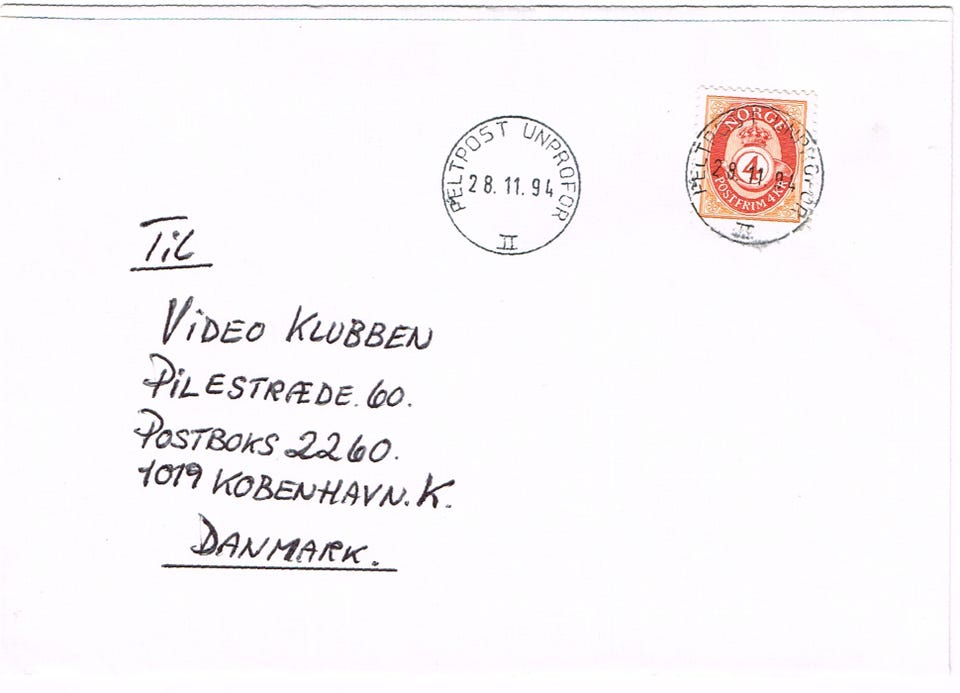 FELTPOST UNPROFOR
28.11.94
II
NORGE
4
POSTFRIM 4 KR
FELTPOST UNPROFOR
28.11.94
II
Til
VIDEO KLUBBEN
PILESTRÆDE. 60.
POSTBOKS 2260.
1019 KOBENHAVN. K.
DANMARK.